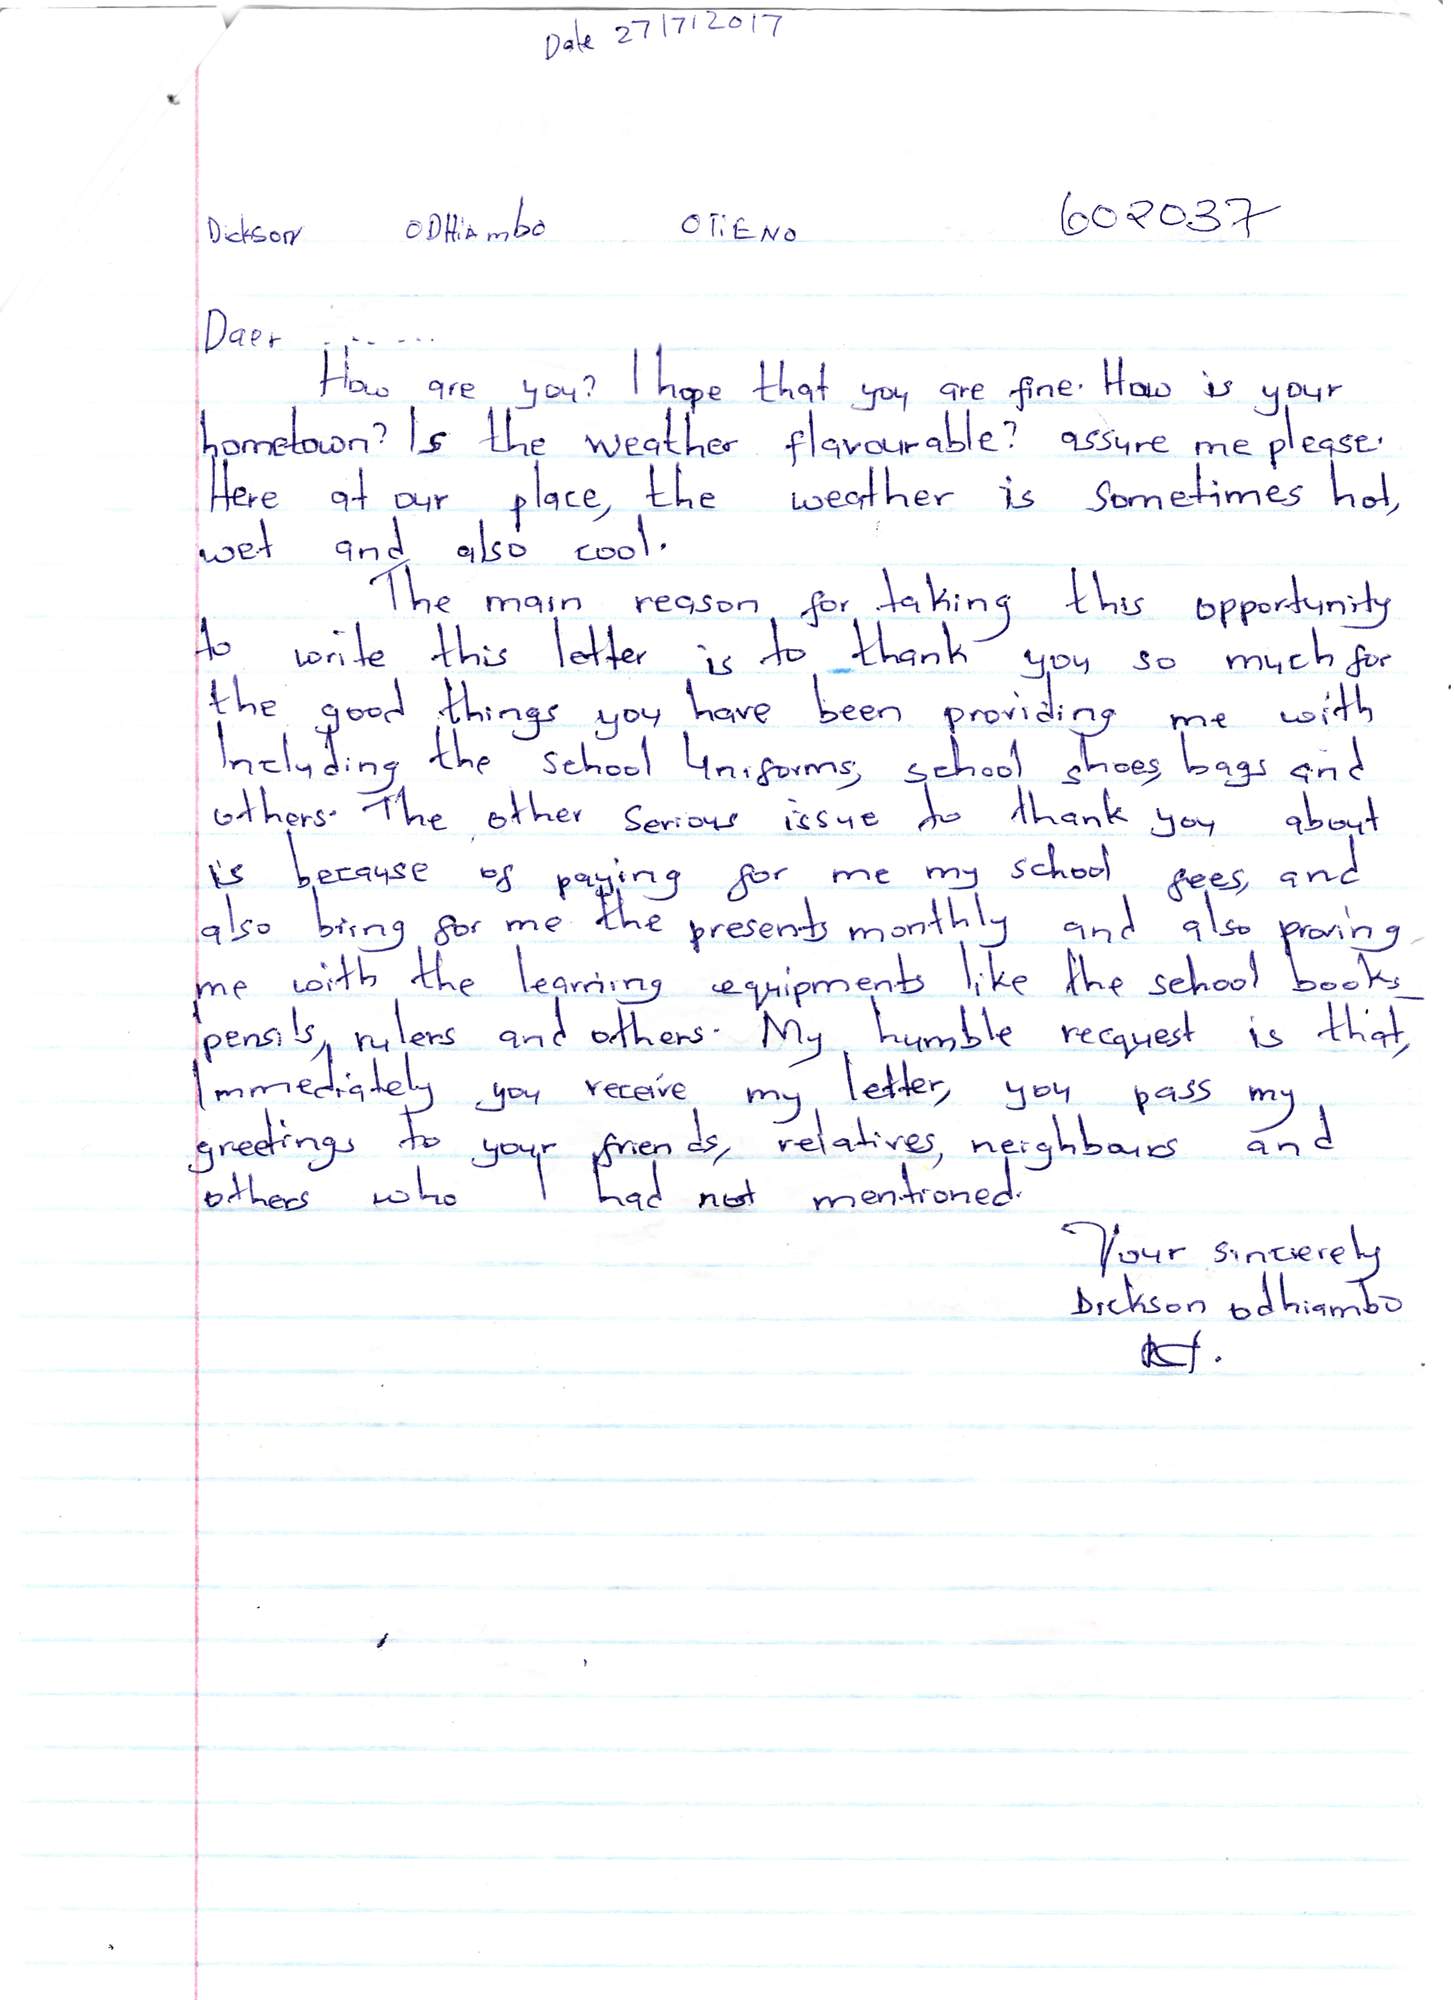 Date 27/7/2017
Dickson ODHiAmbo OTiENO 602037
Daer .......
How are you? I hope that you are fine. How is your
hometown? Is the weather flavourable? assure me please.
Here at our place, the weather is sometimes hot,
wet and also cool.
The main reason for taking this opportunity
to write this letter is to thank you so much for
the good things you have been providing me with
Including the school Uniforms, school shoes, bags and
others. The other serious issue to thank you about
is because of paying for me my school fees, and
also bring for me the presents monthly and also proving
me with the learning equipments like the school books
pensils, rulers and others. My humble recquest is that,
Immediately you receive my letter, you pass my
greetings to your friends, relatives, neighbours and
others who I had not mentioned.
Your sincierely
Dickson odhiambo